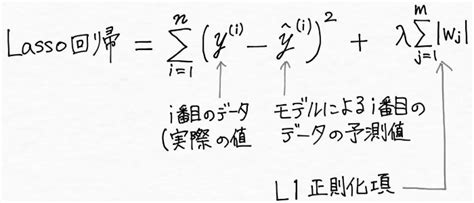 Lasso回帰 = \sum_{i=1}^{n} (y^{(i)} - \hat{y}^{(i)})^2 + λ\sum_{j=1}^{m} |w_j|
i番目のデータ モデルによるi番目の
(実際の値 データの予測値
L1 正則化項